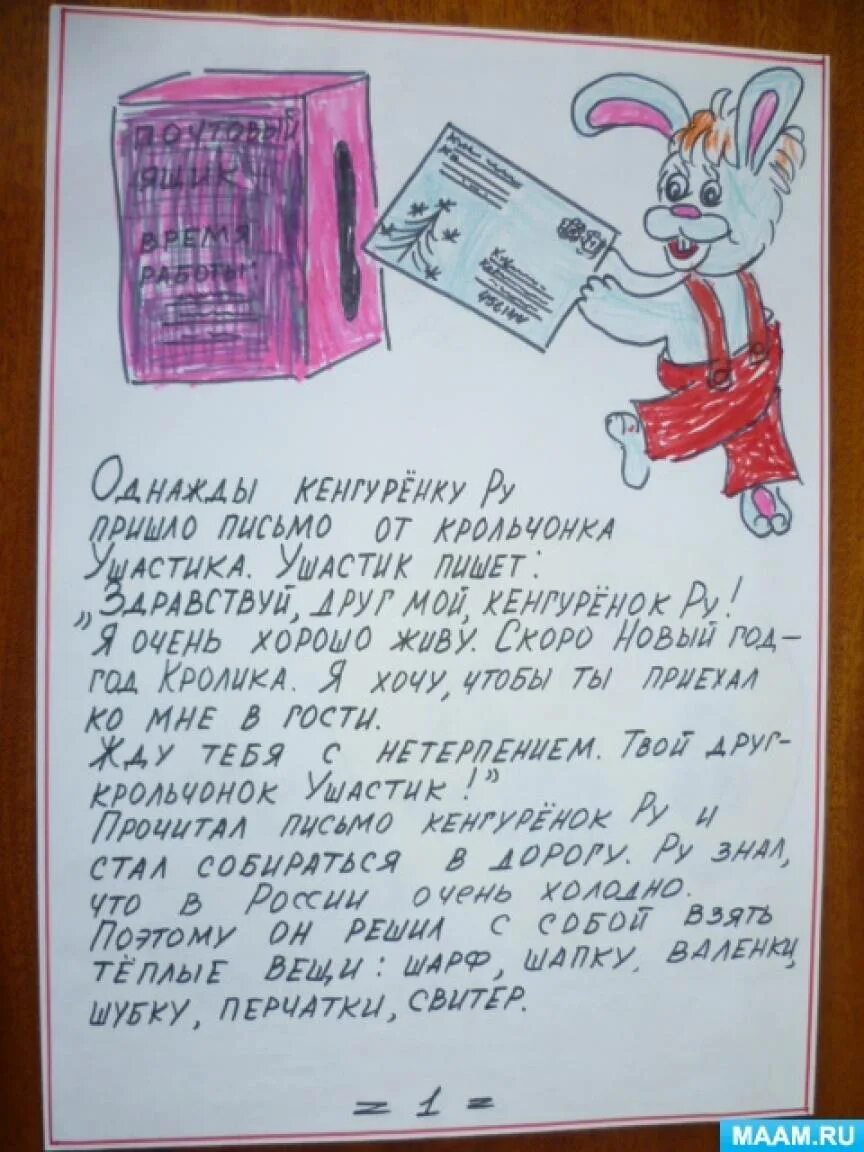 ПОЧТОВЫЙ
ЯЩИК
ВРЕМЯ
РАБОТЫ:
Однажды кенгурёнку Ру
пришло письмо от крольчонка
Ушастика. Ушастик пишет:
„Здравствуй, друг мой, кенгурёнок Ру!
Я очень хорошо живу. Скоро Новый год –
год Кролика. Я хочу, чтобы ты приехал
ко мне в гости.
Жду тебя с нетерпением. Твой друг-
крольчонок Ушастик!”
Прочитал письмо кенгурёнок Ру и
стал собираться в дорогу. Ру знал,
что в России очень холодно.
Поэтому он решил с собой взять
тёплые вещи: шарф, шапку, валенки,
шубку, перчатки, свитер.
= 1 =
MAAM.RU